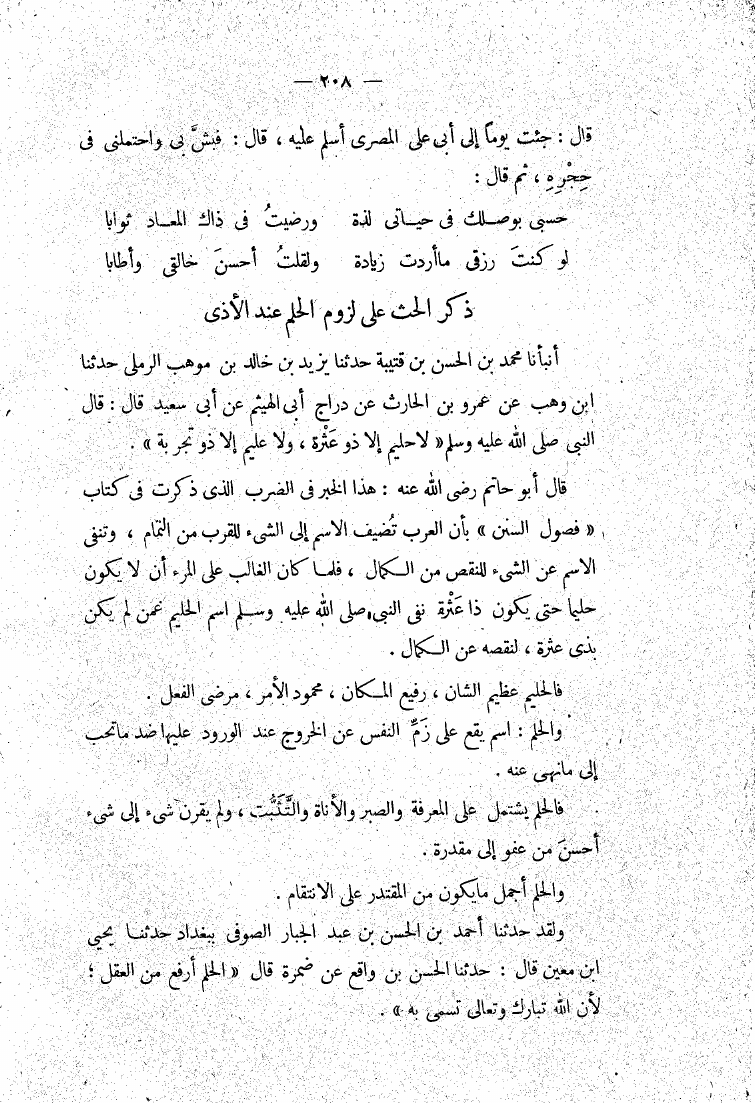 — ٢٠٨ —
قال : جئت يوماً إلى أبى على المصرى أسلم عليه ، قال : فبشَّ بى واحتملنى فى
حِجْرِهِ ، ثم قال :
حسبى بوصــلك فى حيــاتى لذة ورضيتُ فى ذاك المعــاد ثوابا
لو كنتَ رزقى ماأردت زيادة ولقلتُ أحسنَ خالقى وأطابا
ذكر الحث على لزوم الحلم عند الأذى
أنبأنا محمد بن الحسن بن قتيبة حدثنا يزيد بن خالد بن موهب الرملى حدثنا
ابن وهب عن عمرو بن الحارث عن دراج أبى الهيثم عن أبى سعيد قال : قال
النبى صلى الله عليه وسلم « لاحليم إلا ذو عَثْرة ، ولا عليم إلا ذو تجربة » .
قال أبو حاتم رضى الله عنه : هذا الخبر فى الضرب الذى ذكرت فى كتاب
« فصول السنن » بأن العرب تُضيف الاسم إلى الشىء للقرب من التمام ، وتنفى
الاسم عن الشىء للنقص من الــكمال ، فلمــا كان الغالب على المرء أن لا يكون
حليما حتى يكون ذا عَثْرة نفى النبى صلى الله عليه وســلم اسم الحليم عمن لم يكن
بذى عثرة ، لنقصه عن الــكمال .
فالحليم عظيم الشان ، رفيع المــكان ، محمود الأمر ، مرضى الفعل .
والحلم : اسم يقع على زَمِّ النفس عن الخروج عند الورود عليها ضد ماتحب
إلى مانهى عنه .
فالحلم يشتمل على المعرفة والصبر والأناة والتَّثَبُّت ، ولم يقرن شىء إلى شىء
أحسنَ من عفو إلى مقدرة .
والحلم أجمل مايكون من المقتدر على الانتقام .
ولقد حدثنا أحمد بن الحسن بن عبد الجبار الصوفى ببغداد حدثنــا يحيى
ابن معين قال : حدثنا الحسن بن واقع عن ضمرة قال « الحلم أرفع من العقل ؛
لأن الله تبارك وتعالى تسمى به » .